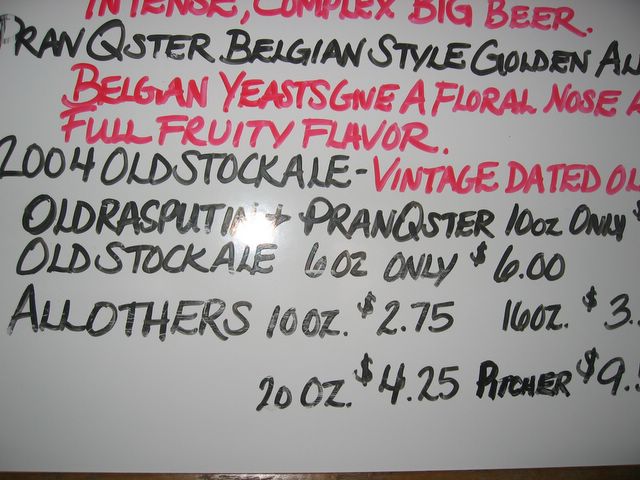 INTENSE, COMPLEX BIG BEER.
PRANQSTER BELGIAN STYLE GOLDEN AL
BELGIAN YEASTS GIVE A FLORAL NOSE A
FULL FRUITY FLAVOR.
2004 OLD STOCK ALE - VINTAGE DATED OL
OLD RASPUTIN + PRANQSTER 10oz ONLY $
OLD STOCK ALE 6oz ONLY $6.00
ALL OTHERS 10oz. $2.75 16oz. $3.
20 oz. $4.25 PITCHER $9.5